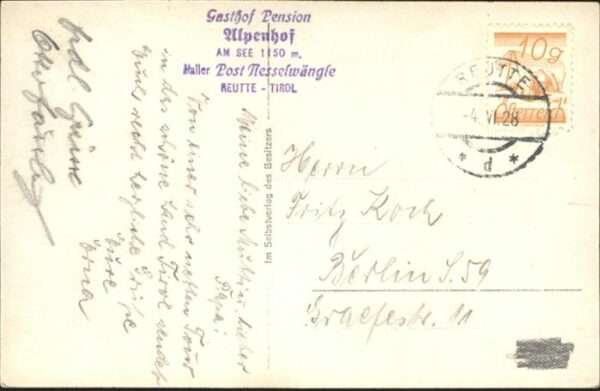 Gasthof Pension
Alpenhof
AM SEE 1150 m.
Haller Post Nesselwängle
REUTTE - TIROL
10g
Österreich
REUTTE
-4.VI.28
* d *
Im Selbstverlag des Besitzers
Herrn
Fritz Koch
Berlin S.59
Graefestr. 11
Meine liebe Mutti u. lieber
Papa!
Von einer sehr netten Tour
in das schöne Land Tirol sendet
Euch recht herzliche Grüße
Eure
Erna
Frdl. Grüße